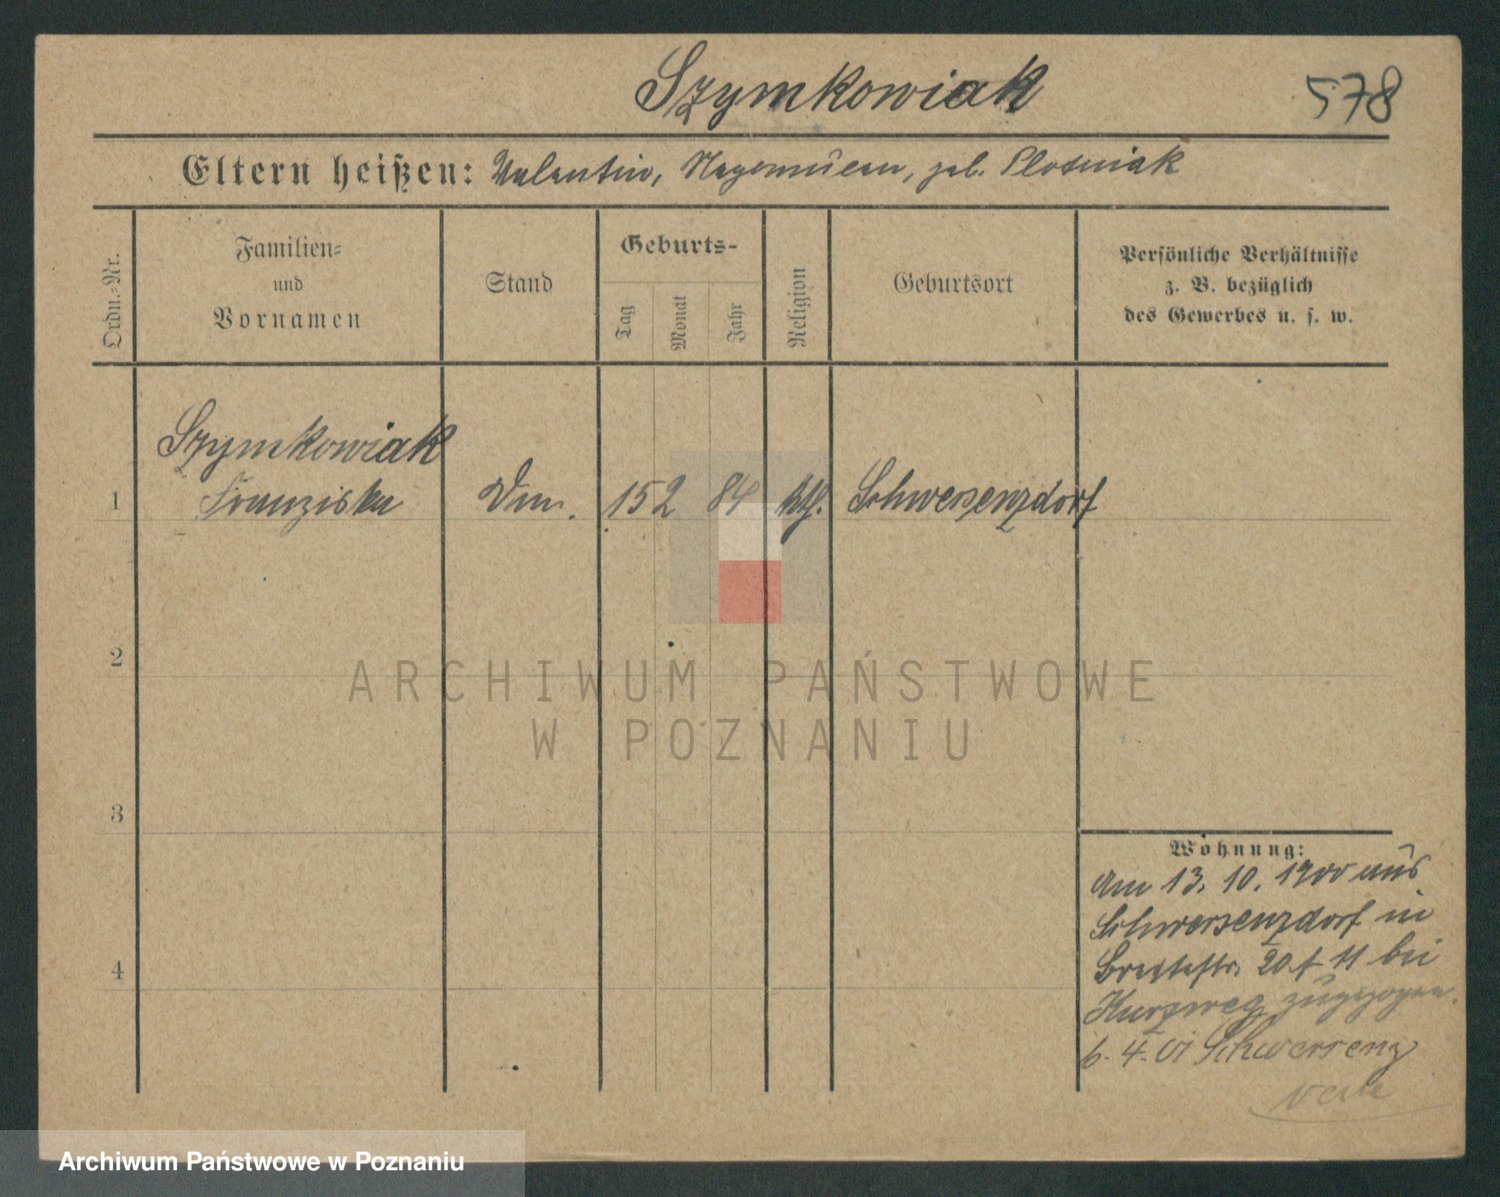 Szymkowiak
578
Eltern heißen: Valentin, Nepomucen, geb. Plotniak
Ordn.-Nr.
Familien-
und
Vornamen
Stand
Geburts-
Tag
Monat
Jahr
Religion
Geburtsort
Persönliche Verhältnisse
z. B. bezüglich
des Gewerbes u. s. w.
Szymkowiak
1 Franziska 15 2 84 kth. Schwersenzdorf
2
3
4
Wohnung:
Am 13. 10. 1900 aus
Schwersenzdorf in
Breitestr. 20 bei
Kurzweg zugezogen.
6. 4. 01 Schwersenz
ARCHIWUM PAŃSTWOWE
W POZNANIU
Archiwum Państwowe w Poznaniu